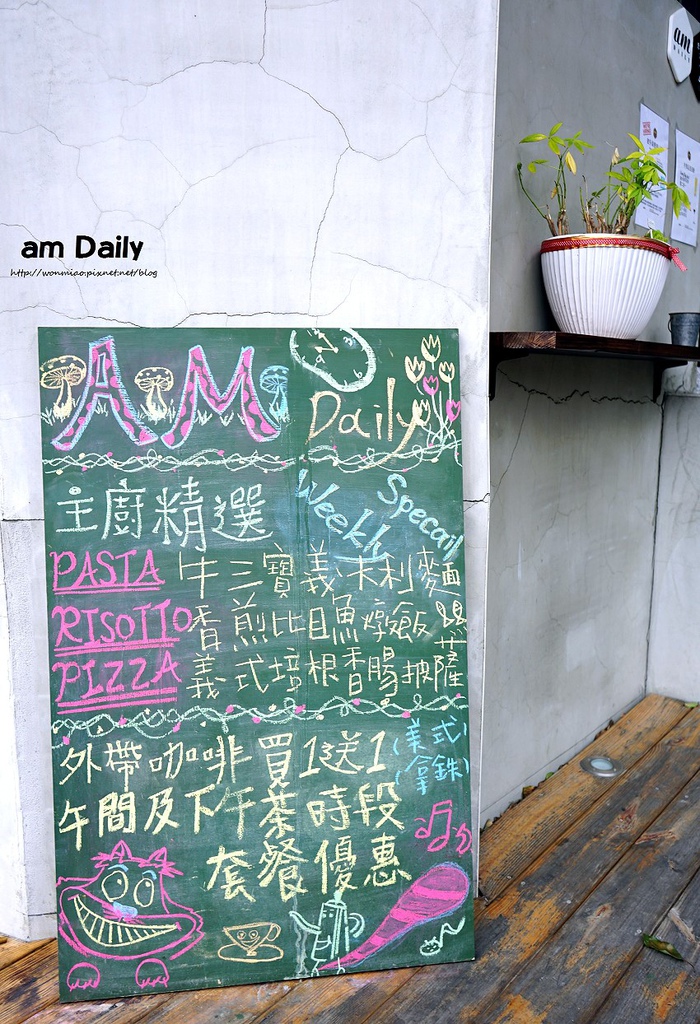 am
DAILY
am Daily
http://wonmiao.pixnet.net/blog
AM Daily
主廚精選 Weekly Specail
PASTA 牛三寶義大利麵
RISOTTO 香煎比目魚燉飯
PIZZA 義式培根香腸披薩
外帶咖啡買1送1 (美式)(拿鉄)
午間及下午茶時段
套餐優惠